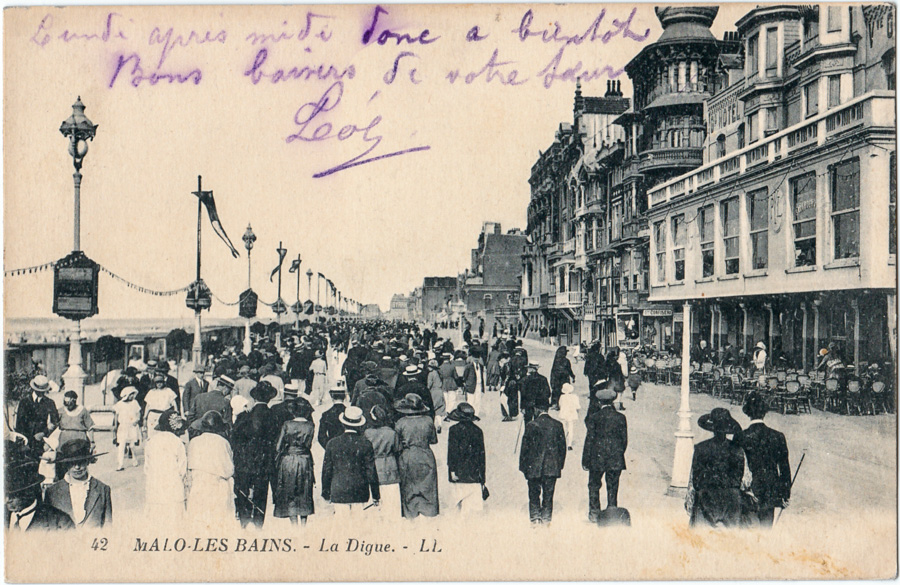 Lundi après midi donc a bientôt
Bons baisers de votre sœur
Léo
HOTEL
42 MALO-LES BAINS. - La Digue. - LL